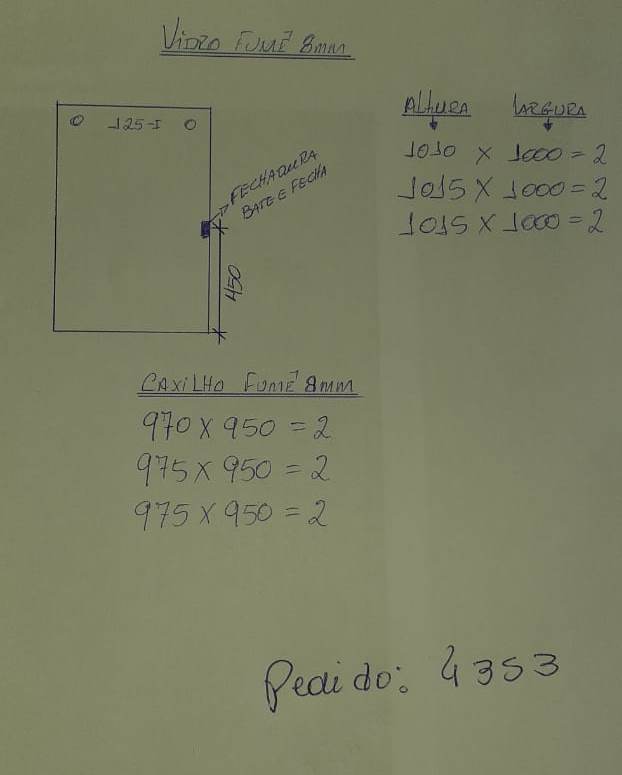 VIDRO FUMÊ 8mm
ALTURA LARGURA
1010 X 1000 = 2
1015 X 1000 = 2
1015 X 1000 = 2
125-I
FECHADURA
BATE E FECHA
450
CAXILHO FUMÊ 8MM
970 X 950 = 2
975 X 950 = 2
975 X 950 = 2
Pedido: 4353